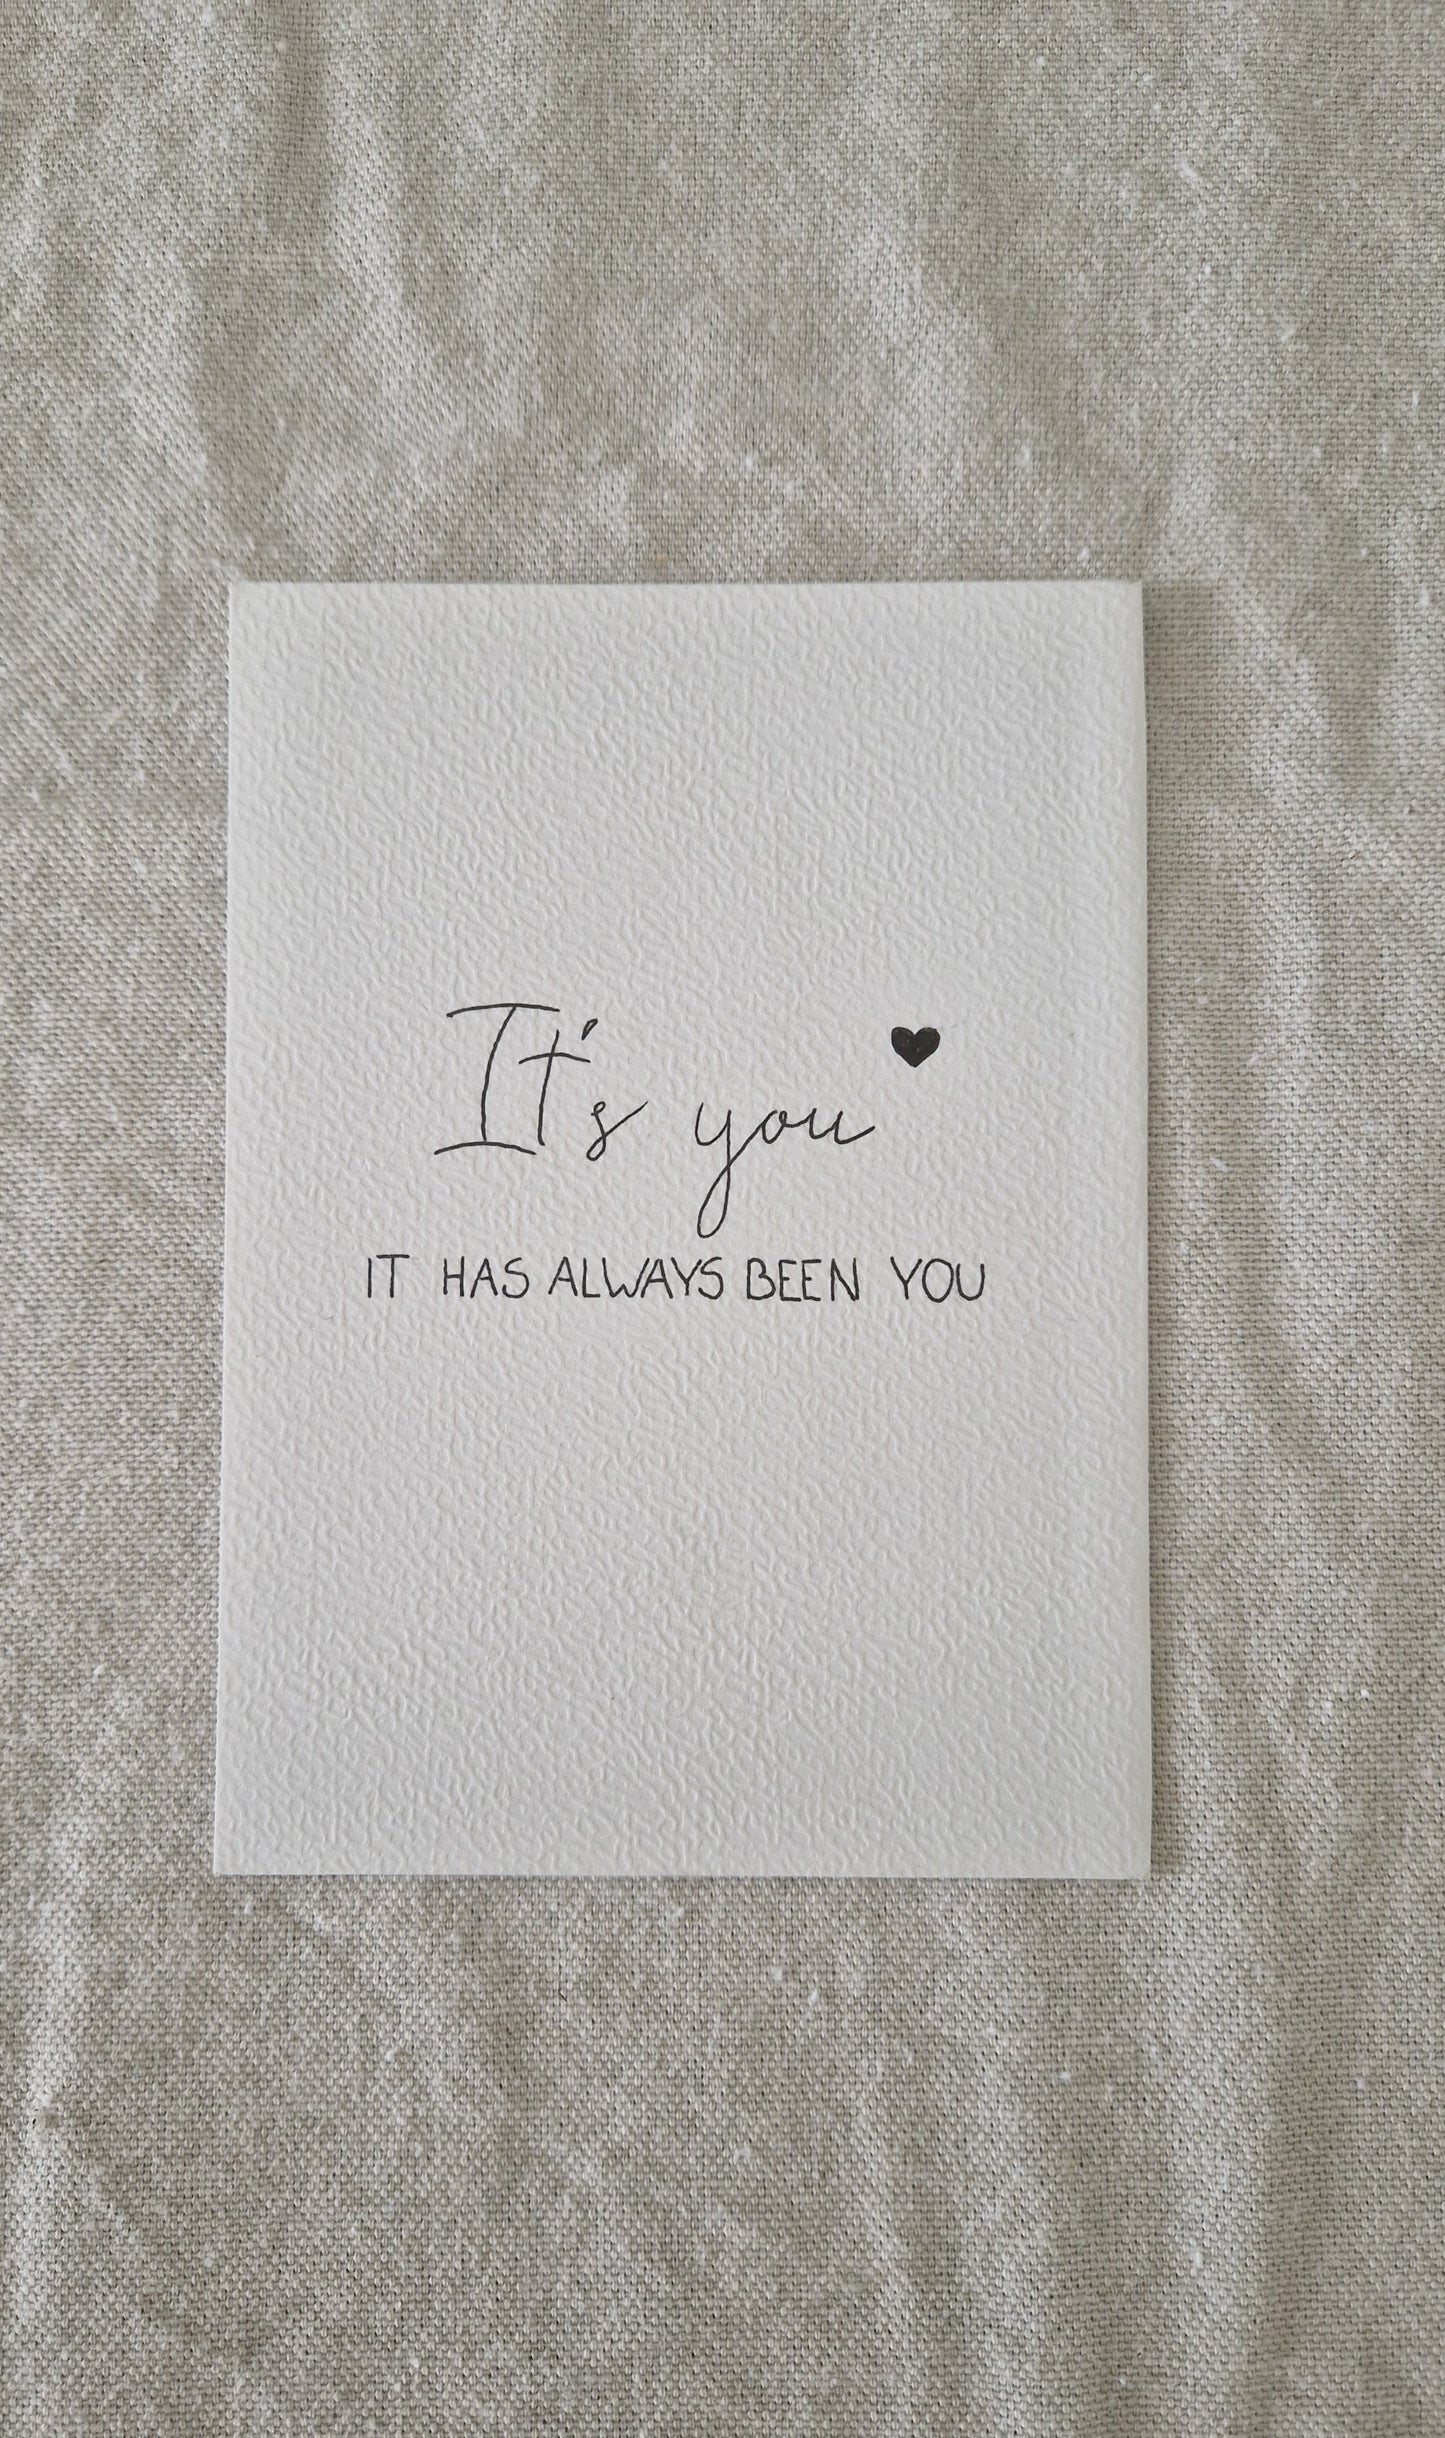 It's you ♥
IT HAS ALWAYS BEEN YOU